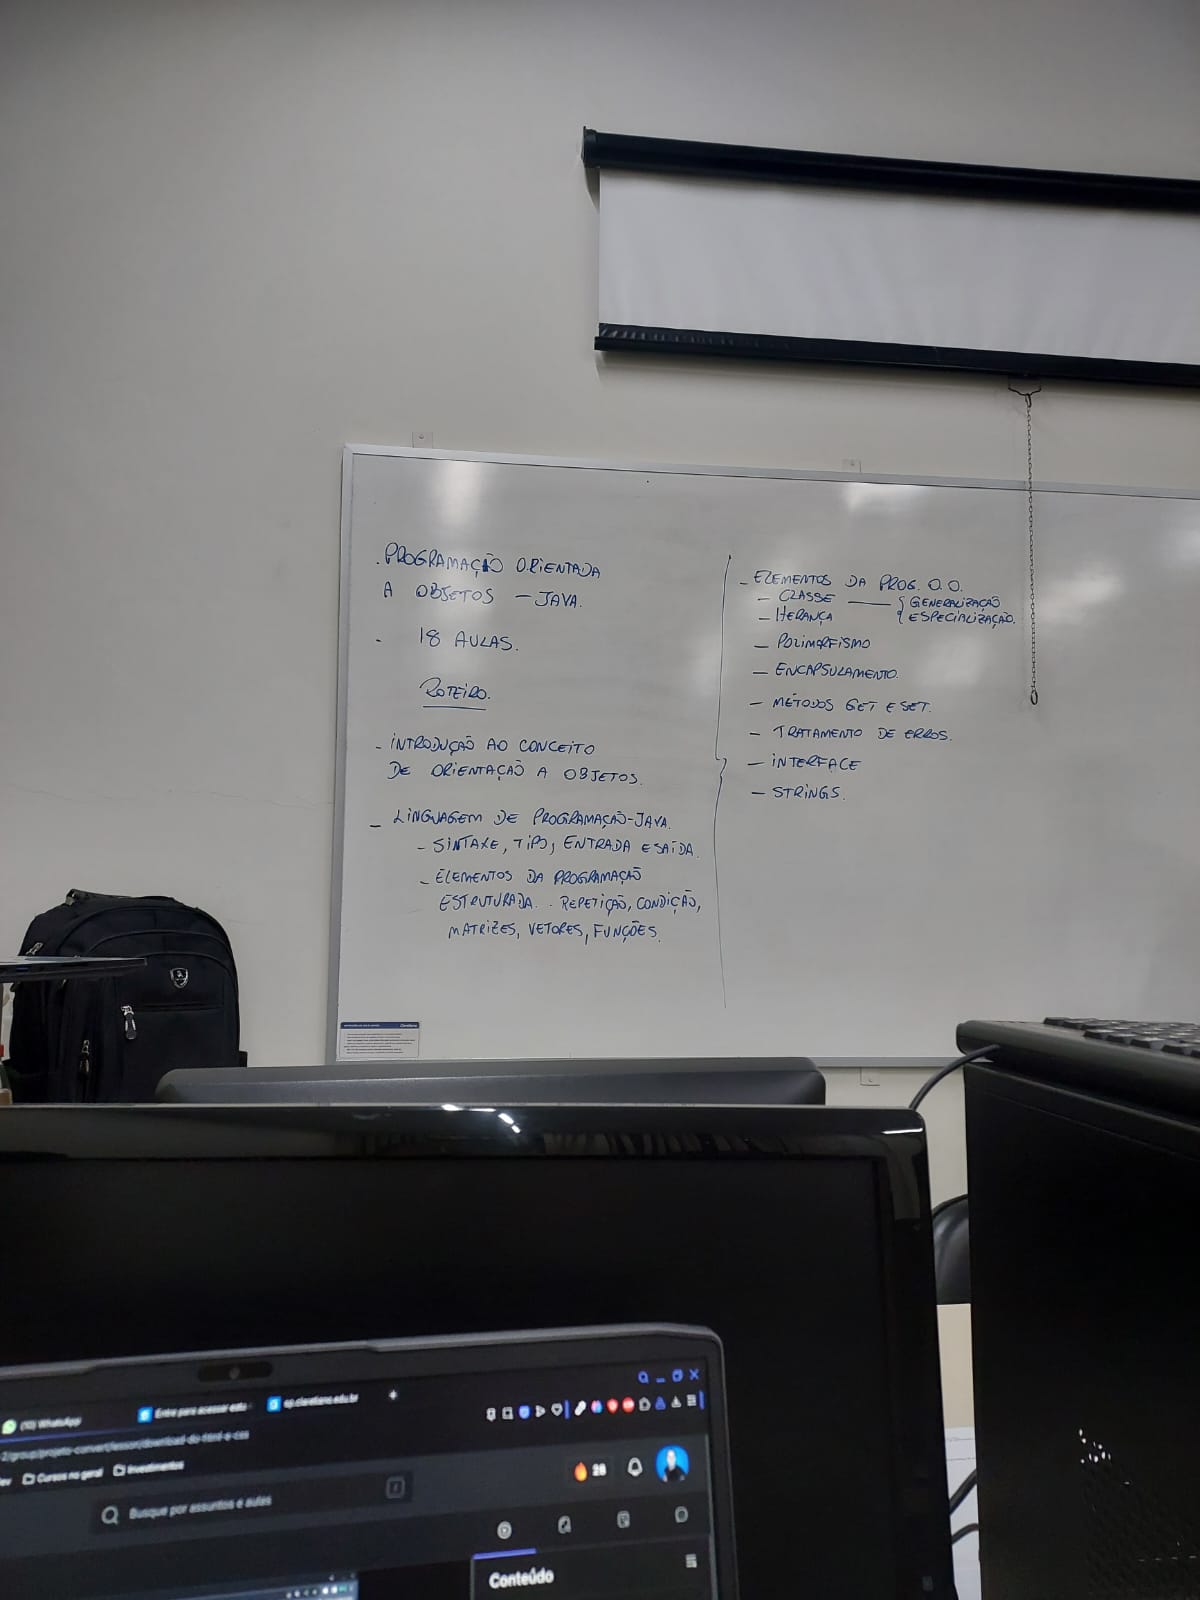 . PROGRAMAÇÃO ORIENTADA
A OBJETOS - JAVA.
- 18 AULAS.
ROTEIRO.
- INTRODUÇÃO AO CONCEITO
DE ORIENTAÇÃO A OBJETOS.
- LINGUAGEM DE PROGRAMAÇÃO-JAVA.
- SINTAXE, TIPO, ENTRADA E SAÍDA.
- ELEMENTOS DA PROGRAMAÇÃO
ESTRUTURADA. . REPETIÇÃO, CONDIÇÃO,
MATRIZES, VETORES, FUNÇÕES.
- ELEMENTOS DA PROG. O.O.
- CLASSE — { GENERALIZAÇÃO
- HERANÇA { ESPECIALIZAÇÃO.
- POLIMORFISMO
- ENCAPSULAMENTO.
- MÉTODOS GET E SET.
- TRATAMENTO DE ERROS.
- INTERFACE
- STRINGS.
Claretiano
(10) WhatsApp
Entre para acessar
ap.claretiano.edu.br
Cursos no geral
Investimentos
Busque por assuntos e aulas
28
Conteúdo